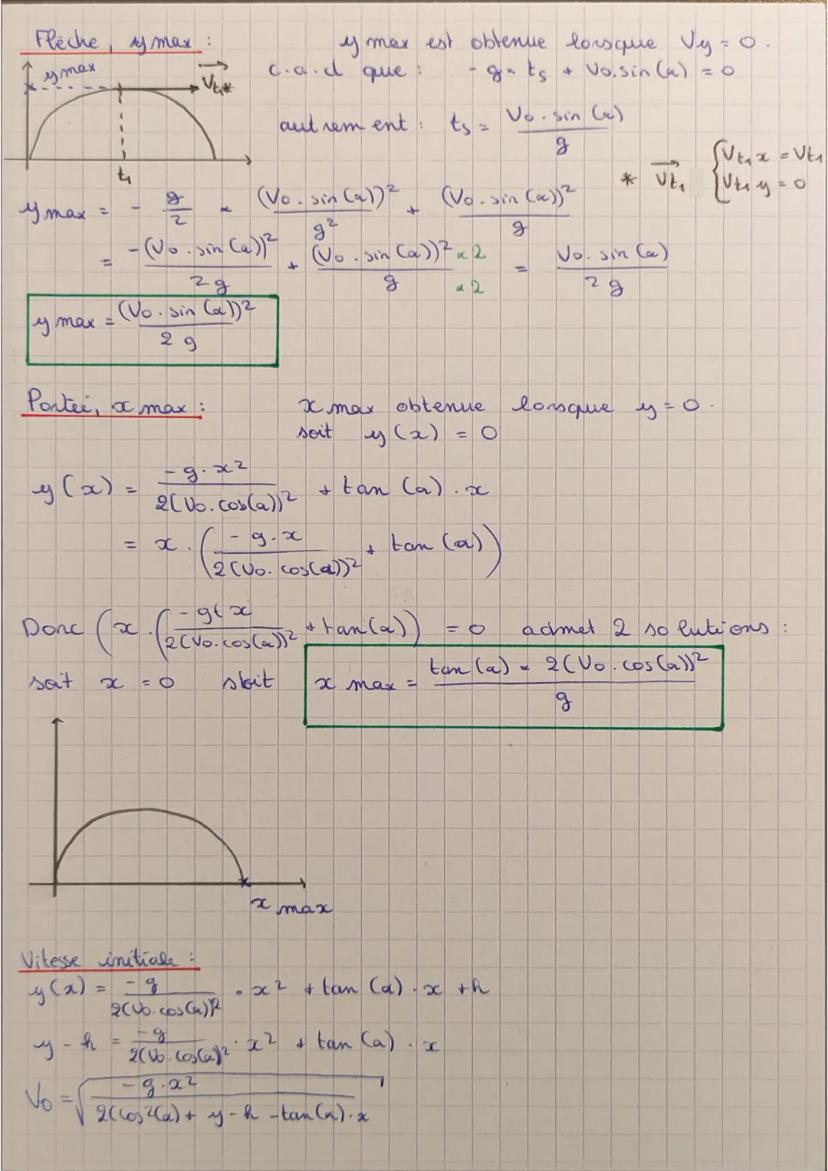 Flèche, y max : y max est obtenue lorsque Vy = 0.
c.a.d que : - g × ts + Vo.sin(α) = 0
y max
Vt₁*
autrement : ts = Vo · sin(α) / g
t₁
* Vt₁ { Vt₁ x = Vt₁
Vt₁ y = 0
y max = - g/2 × (Vo · sin(α))² / g² + (Vo · sin(α))² / g
= -(Vo · sin(α))² / 2g + (Vo · sin(α))² × 2 / g × 2 = Vo · sin(α) / 2g
y max = (Vo · sin(α))² / 2g
Portée, x max : x max obtenue lorsque y = 0.
soit y(x) = 0
y(x) = -g·x² / 2(Vo.cos(α))² + tan(α) · x
= x · ( -g·x / 2(Vo.cos(α))² + tan(α) )
Donc ( x · ( -g( x / 2(Vo.cos(α))² + tan(α) ) = 0 admet 2 solutions :
soit x = 0 soit x max = tan(α) × 2(Vo.cos(α))² / g
x max
Vitesse initiale :
y(x) = -g / 2(Vo.cos(α))² · x² + tan(α) · x + h
y - h = -g / 2(Vo.cos(α)² · x² + tan(α) · x
Vo = √( -g·x² / 2(cos²(α) + y - h - tan(α)·x